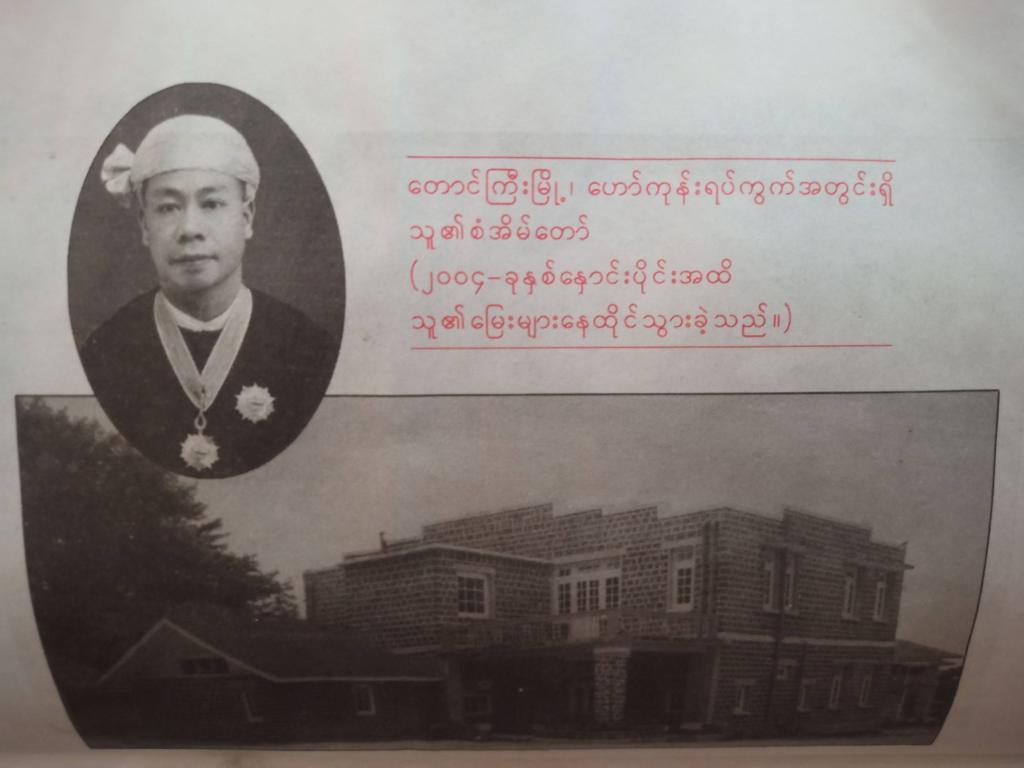 တောင်ကြီးမြို့၊ ဟော်ကုန်းရပ်ကွက်အတွင်းရှိ
သူ၏စံအိမ်တော်
(၂၀၀၄-ခုနှစ်နှောင်းပိုင်းအထိ
သူ၏မြေးများနေထိုင်သွားခဲ့သည်။)